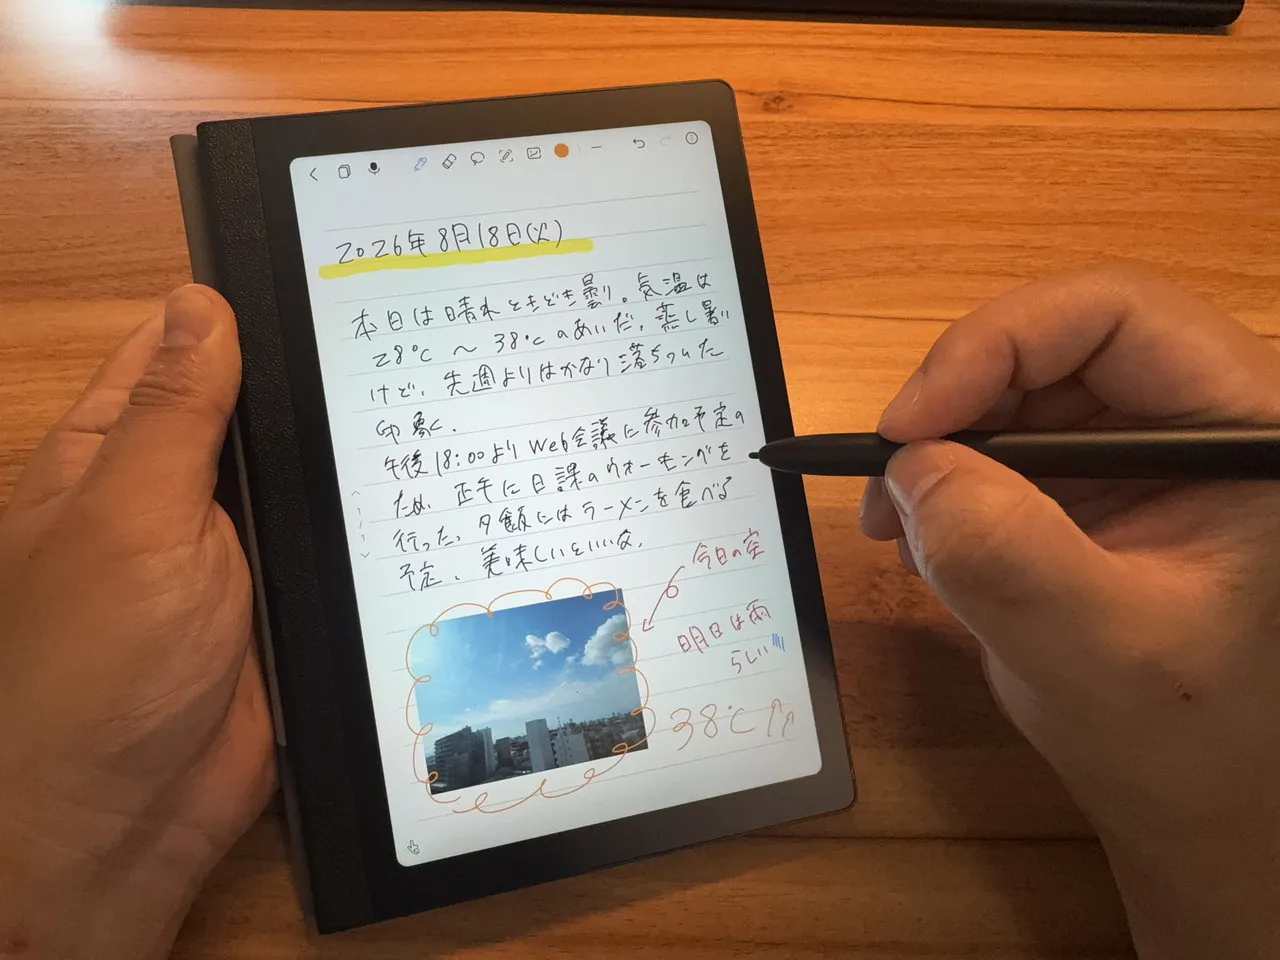 2026年8月18日(火)
本日は晴れときどき曇り。気温は
28℃〜38℃のあいだ。蒸し暑い
けど、先週よりはかなり落ちついた
印象。
午後18:00よりWeb会議に参加予定の
ため、正午に日課のウォーキングを
行った。夕飯にはラーメンを食べる
予定。美味しいといいな。
今日の空
明日は雨
らしい
38℃↑↑